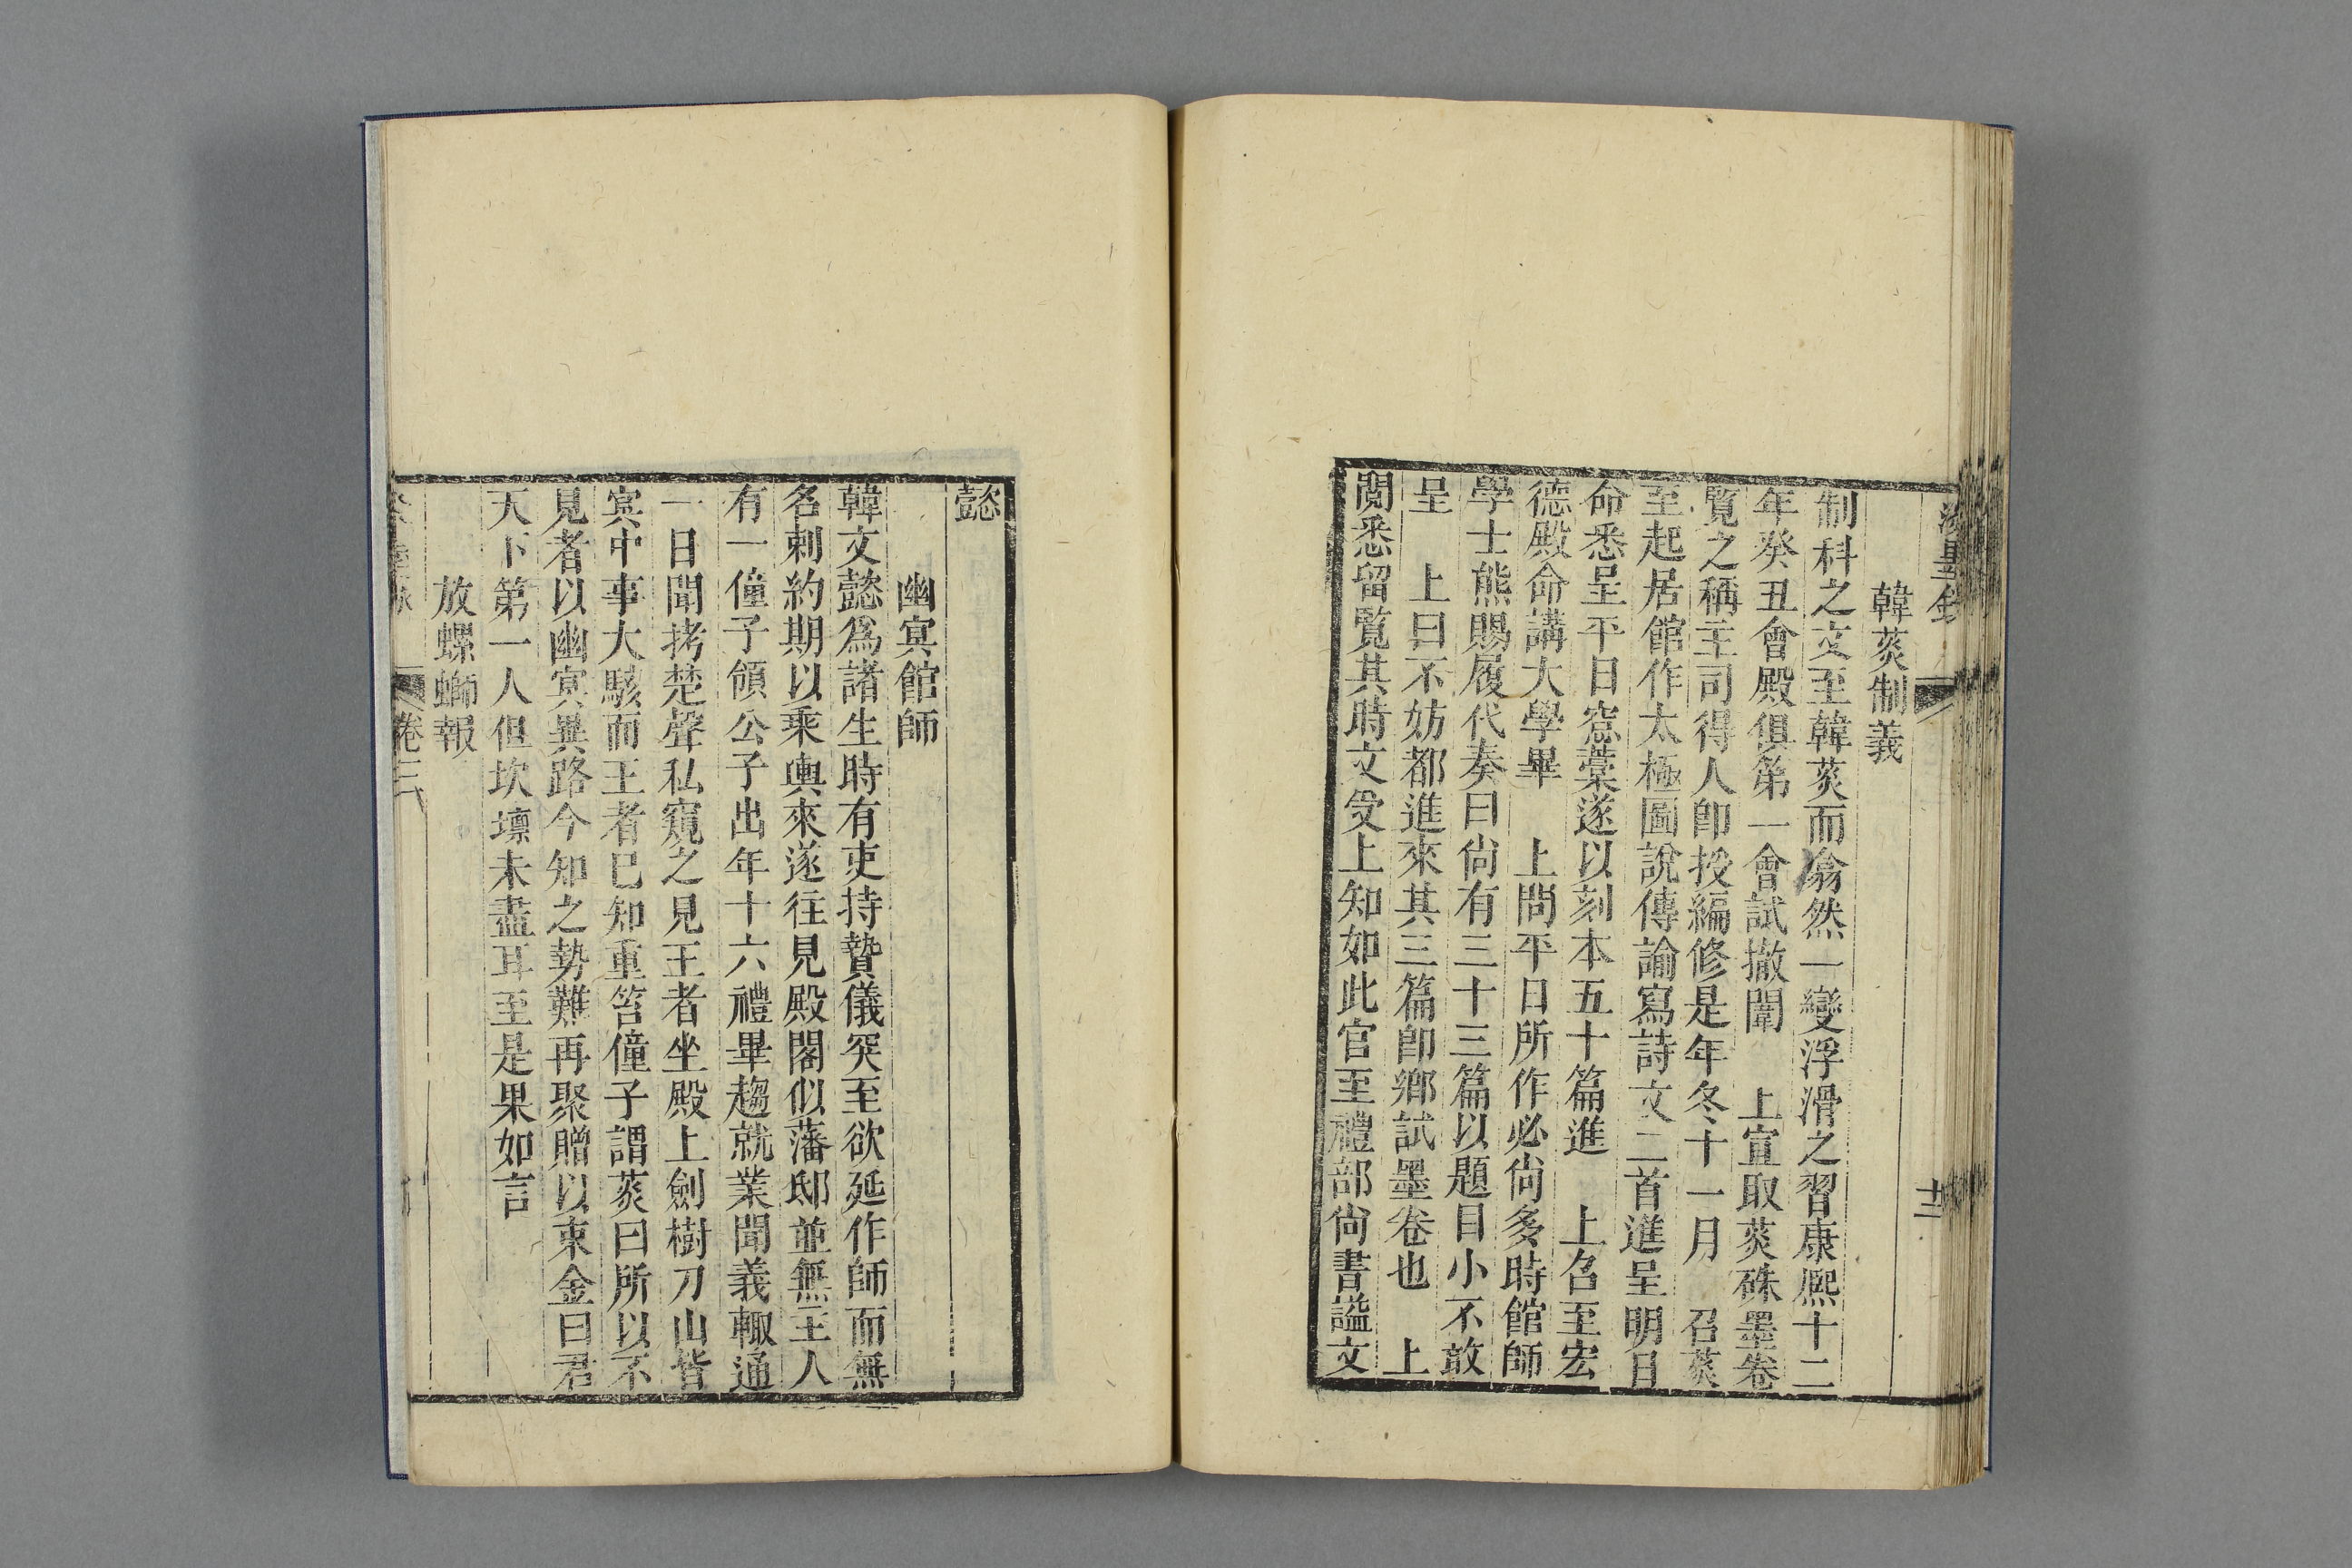 韓菼制義
制科之文至韓菼而翕然一變浮滑之習康熙十二
年癸丑會殿俱第一會試撤闈　上宣取菼硃墨卷
覽之稱主司得人卽授編修是年冬十一月　召菼
至起居館作太極圖說傳諭寫詩文二首進呈明日
命悉呈平日窓藁遂以刻本五十篇進　上召至宏
德殿命講大學畢　上問平日所作必尙多時館師
學士熊賜履代奏曰尙有三十三篇以題目小不敢
呈　上曰不妨都進來其三篇卽鄉試墨卷也　上
閱悉留覽其時文受上知如此官至禮部尙書謚文
十三
懿
幽冥館師
韓文懿爲諸生時有吏持贄儀突至欲延作師而無
名刺約期以乘輿來遂往見殿閣似藩邸並無主人
有一僮子領公子出年十六禮畢趨就業聞義輙通
一日聞拷楚聲私窺之見王者坐殿上劍樹刀山皆
冥中事大駭而王者已知重笞僮子謂菼曰所以不
見者以幽冥異路今知之勢難再聚贈以束金曰君
天下第一人但坎壈未盡耳至是果如言
放螺螄報
卷三